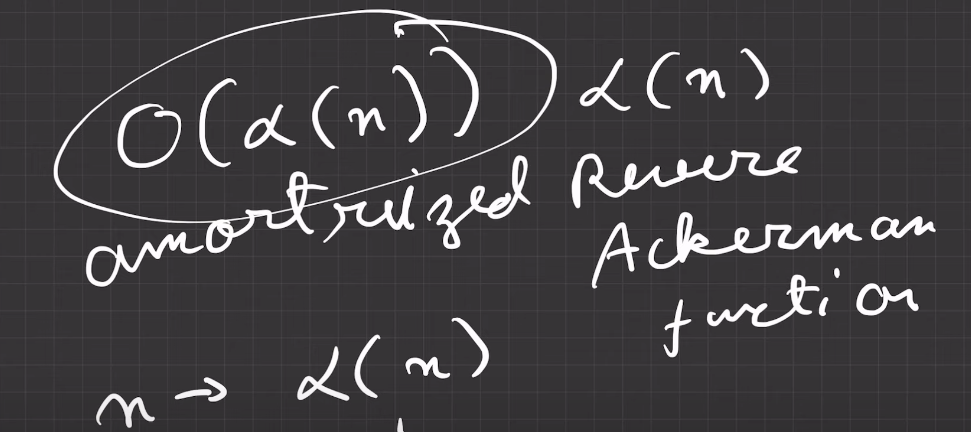 O(α(n)) α(n)
amortrized Revere
Ackerman
function
n → α(n)